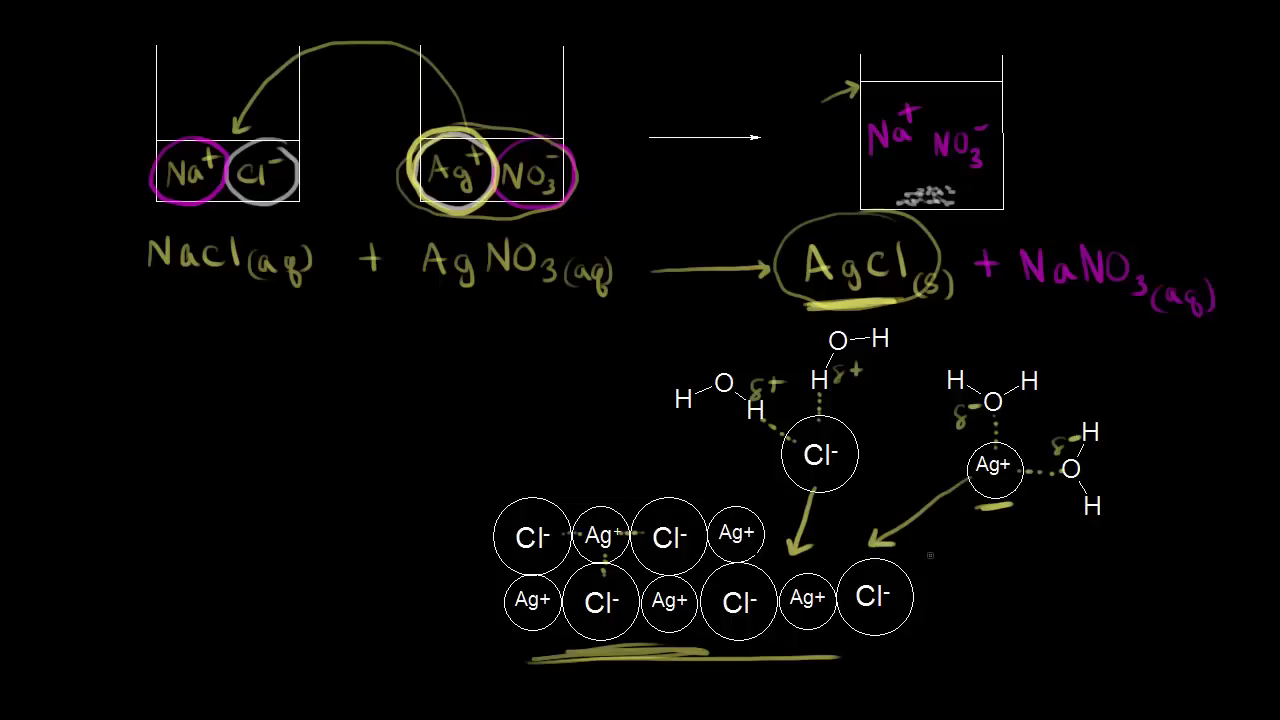 Na⁺ Cl⁻ Ag⁺ NO₃⁻ Na⁺ NO₃⁻
NaCl(aq) + AgNO₃(aq) → AgCl(s) + NaNO₃(aq)
O H
H δ+
H O H δ+
H H
O δ-
H O H δ-
Cl⁻
Ag+
Cl⁻ Ag⁺ Cl⁻ Ag+
Ag+ Cl⁻ Ag+ Cl⁻ Ag+ Cl⁻